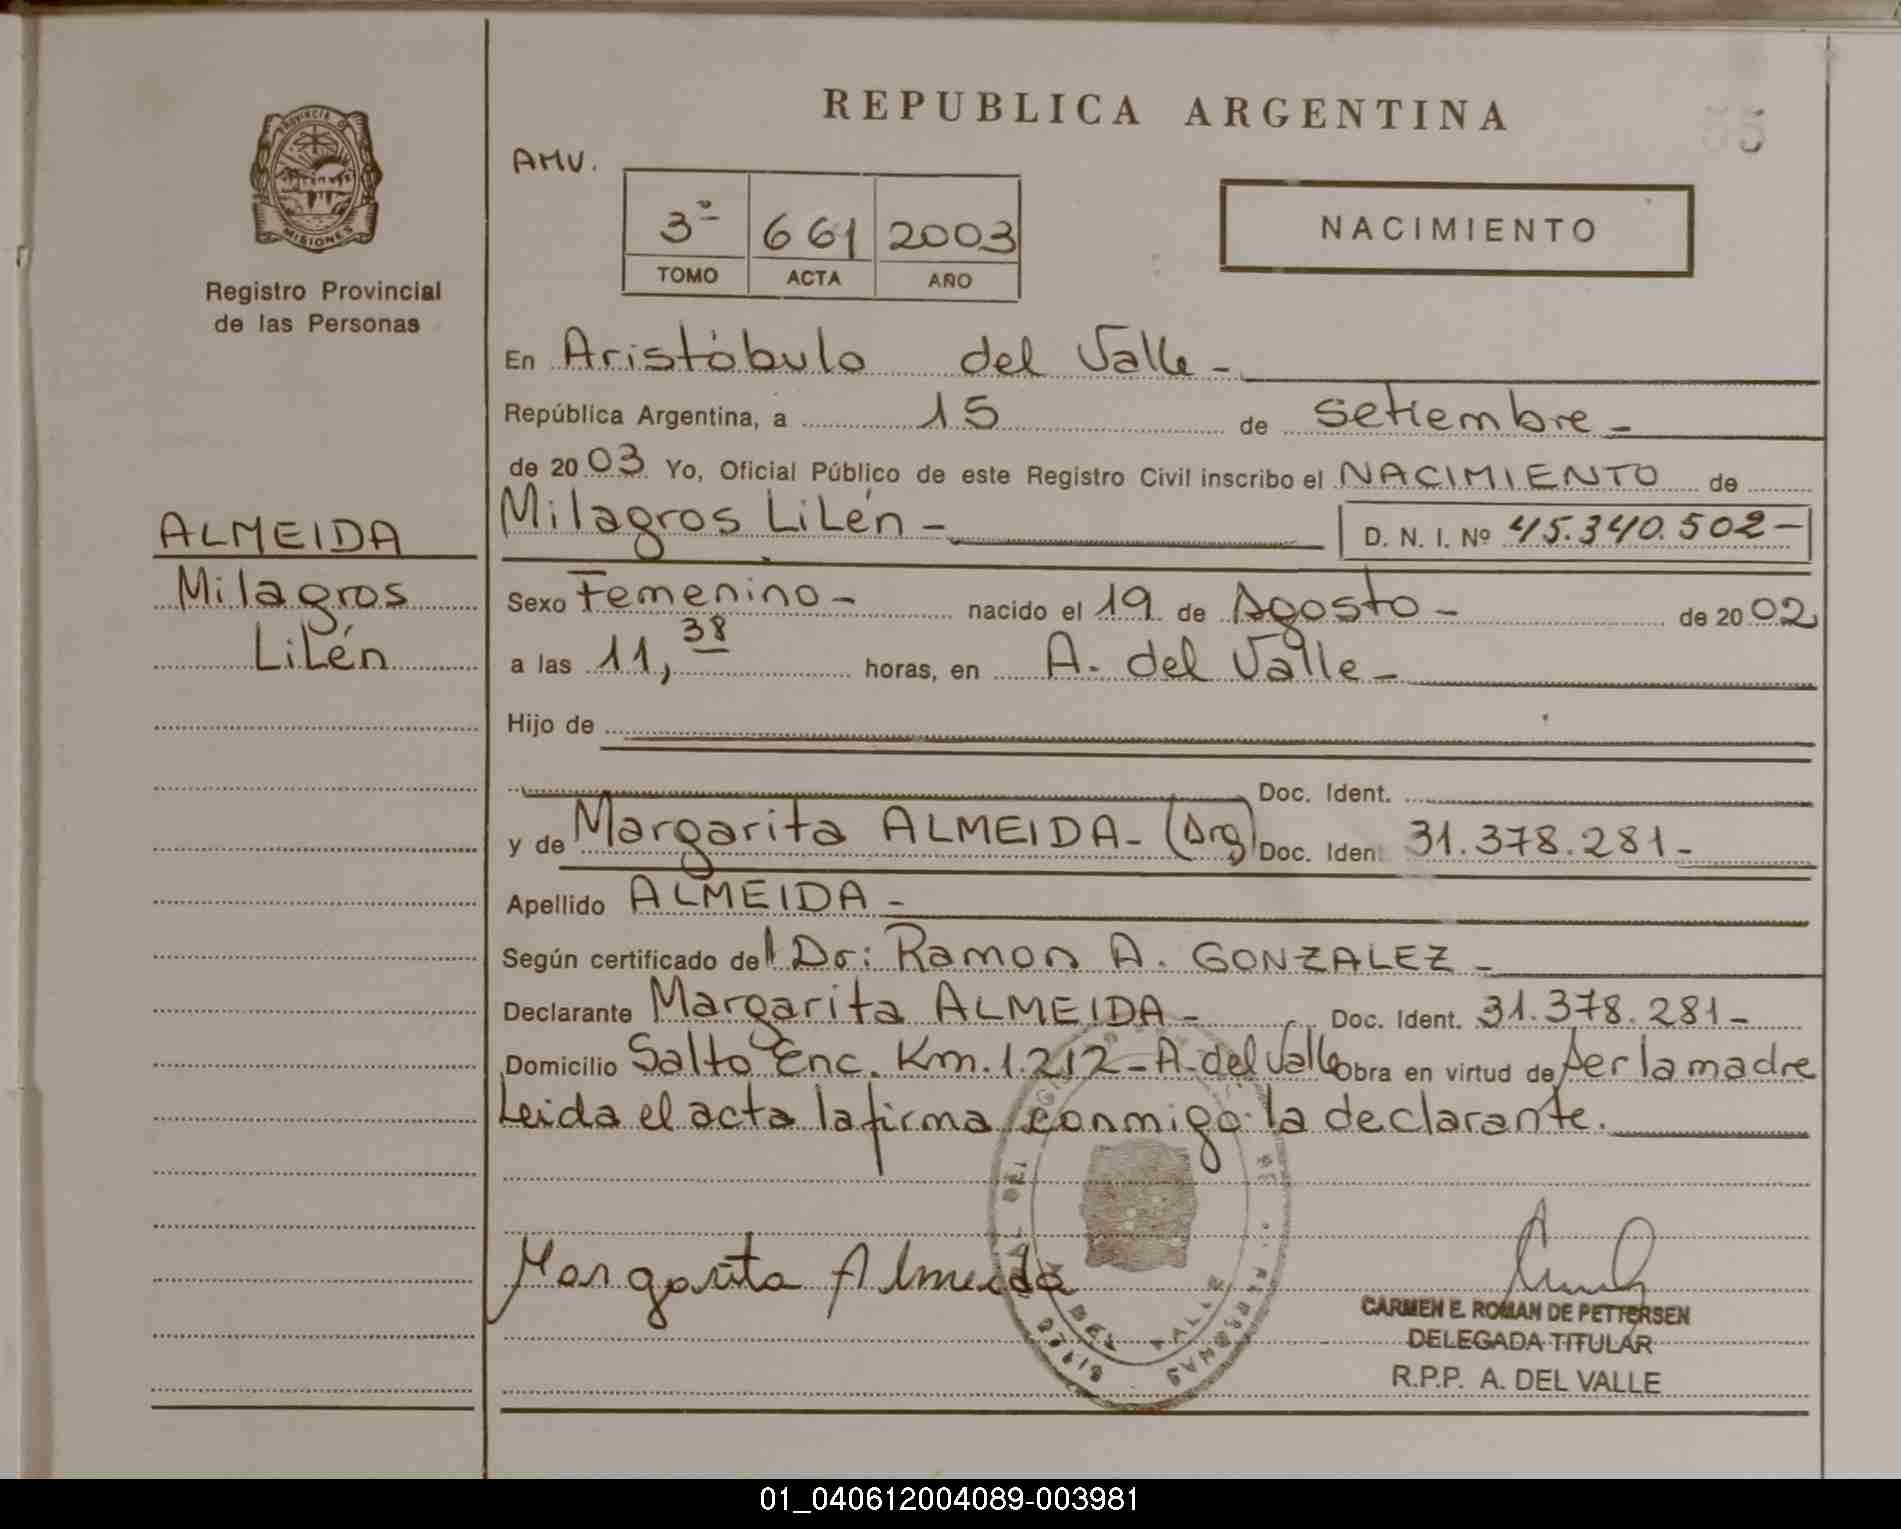 REPUBLICA ARGENTINA
55
PROVINCIA DE
MISIONES
Registro Provincial
de las Personas
AMV.
3º 661 2003
TOMO ACTA AÑO
NACIMIENTO
En Aristóbulo del Valle -
República Argentina, a 15 de setiembre -
de 2003 Yo, Oficial Público de este Registro Civil inscribo el NACIMIENTO de
ALMEIDA
Milagros
Lilén
Milagros Lilén - D. N. I. Nº 45.340.502 -
Sexo Femenino - nacido el 19 de Agosto - de 2002
a las 11,38 horas, en A. del Valle -
Hijo de
Doc. Ident.
y de Margarita ALMEIDA - (Arg) Doc. Iden 31.378.281 -
Apellido ALMEIDA -
Según certificado del Dr: Ramon A. GONZALEZ -
Declarante Margarita ALMEIDA - Doc. Ident. 31.378.281 -
Domicilio Salto Enc. Km. 1.212 - A. del Valle Obra en virtud de ser la madre
Leida el acta la firma conmigo la declarante.
Margarita Almeida
DEL VALLE
CARMEN E. ROMAN DE PETTERSEN
DELEGADA TITULAR
R.P.P. A. DEL VALLE
01_040612004089-003981